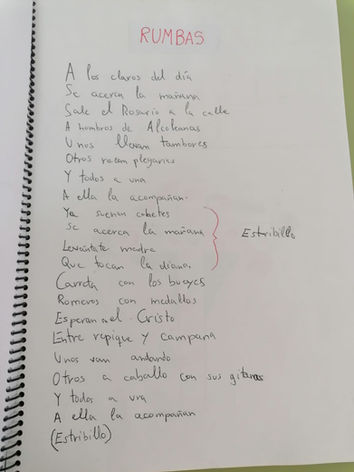 RUMBAS
A los claros del día
Se acerca la mañana
Sale el Rosario a la calle
A hombros de Alcoleanas
Unos llevan tambores
Otros rezan plegarias
Y todos a una
A ella la acompañan.
Ya suenan cohetes
Se acerca la mañana
Levántate madre
Que tocan la diana.
Estribillo
Carreta con los bueyes
Romeros con medallas
Esperan en el Cristo
Entre repique y campana
Unos van andando
Otros a caballo con sus gitanas
Y todos a una
A ella la acompañan
(Estribillo)